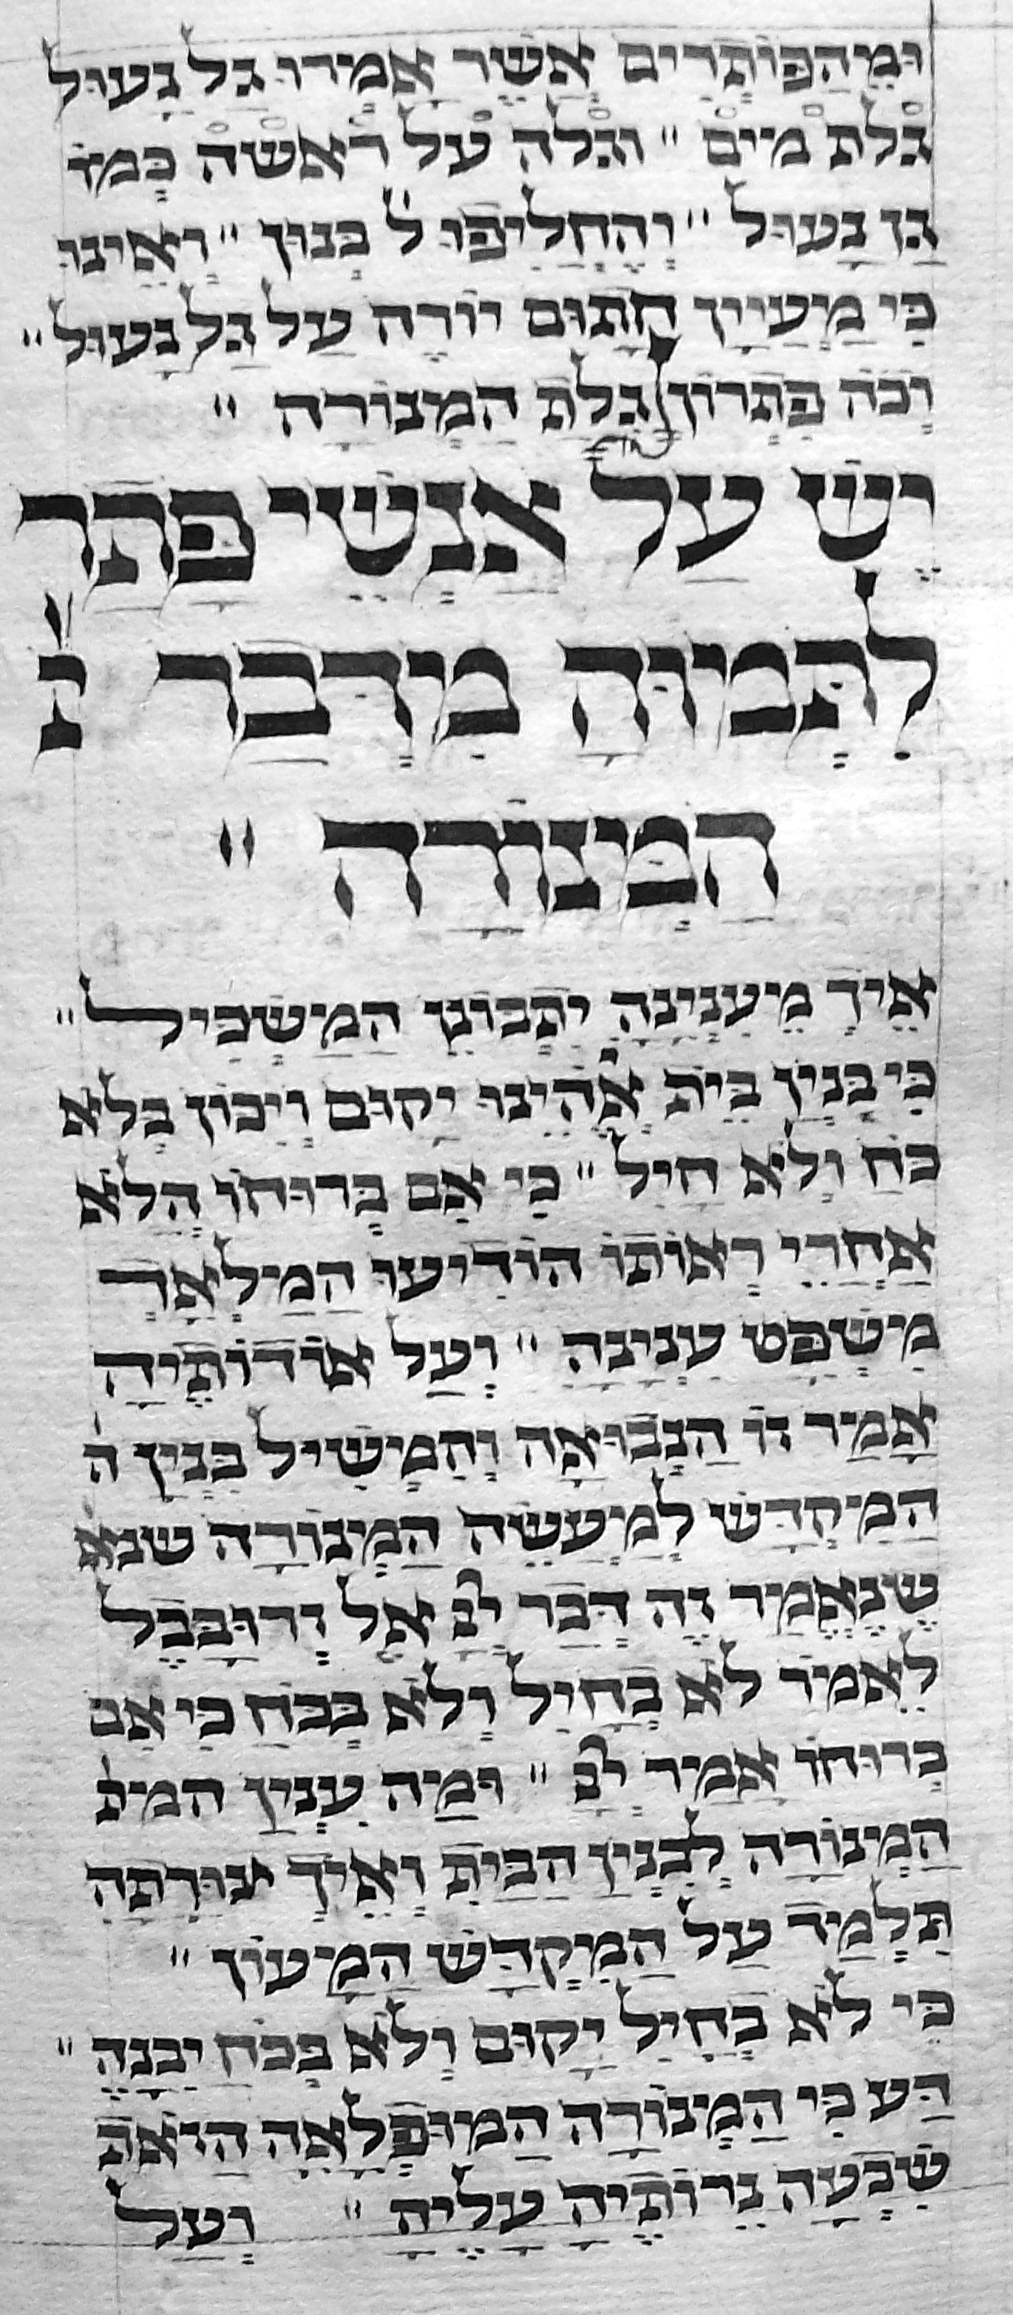 וּמֵהַפּוֹתְרִים אֲשֶׁר אָמְרוּ גַל נָעוּל
גֻּלֹּת מַיִם " וְגֻלָּה עַל רֹאשָׁהּ כְּמוֹ
גַן נָעוּל " וְהֶחֱלִיפוּ ל׳ בְּנוּן " וְאֵינוּ
כִּי מַעְיָין חָתוּם יוֹרֶה עַל גַּל נָעוּל "
וְכֹה פִתְרוֹן לְגֻלֹּת הַמְּנוֹרָה "
יֵשׁ עַל אַנְשֵׁי פִתְר
לִתְמִיהָּ מִדְּבַר הַ׳
הַמְּנוֹרָה "
אֵיךְ מֵעִנְיָנָהּ יִתְבּוֹנֵן הַמַּשְׂכִּיל "
כִּי בִּנְיַן בֵּית אֱ׳הֵינוּ יָקוּם וְיִכּוֹן בְּלֹא
כֹּחַ וְלֹא חַיִל " כִּי אִם בְּרוּחוֹ הֲלֹא
אַחֲרֵי רְאוֹתוֹ הוֹדִיעוֹ הַמַּלְאָךְ
מִשְׁפַּט עִנְיָנָהּ " וְעַל אוֹדוֹתֶיהָ
אָמַר זוֹ הַנְּבוּאָה וְהִמְשִׁיל בִּנְיַן הַ׳
הַמִּקְדָּשׁ לְמַעֲשֵׂה הַמְּנוֹרָה שנא׳
שֶׁנֶּאֱמַר זֶה דְּבַר יְ׳יָ אֶל זְרוּבָּבֶל
לֵאמֹר לֹא בְחַיִל וְלֹא בְּכֹחַ כִּי אִם
בְּרוּחוֹ אָמַר יְ׳יָ " וּמַה עִנְיַן המנ׳
הַמְּנוֹרָה לְבִנְיַן הַבַּיִת וְאֵיךְ צוּרָתָהּ
תְּלַמֵּד עַל הַמִּקְדָּשׁ הַמָּעוֹן "
כִּי לֹא בְּחַיִל יָקוּם וְלֹא בְּכֹחַ יִבָּנֶה "
דַּע כִּי הַמְּנוֹרָה הַמּוּפְלָאָה הַזֹּאת
שִׁבְעָה נֵרוֹתֶיהָ עָלֶיהָ " וְעַל